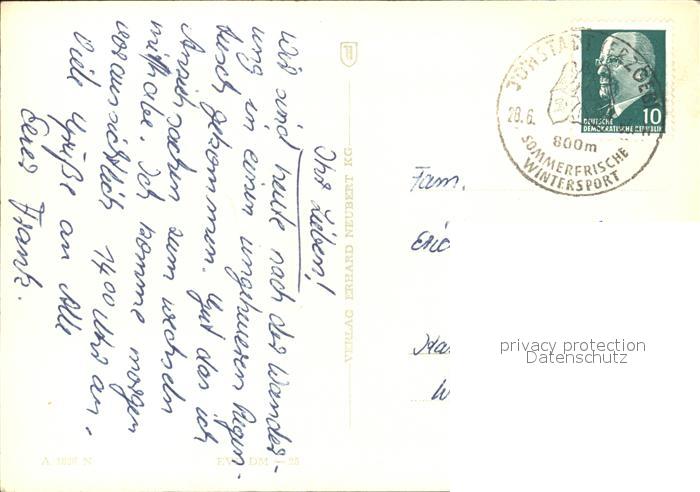 Ihr Lieben!
Wir sind heute nach der Wander-
ung in einen ungeheueren Regen-
dusch gekommen. Gut das ich
Anziehsachen zum wechseln
mithabe. Ich komme morgen
voraussichtlich 14 00 Uhr an.
Viele Grüße an Alle
Euer Frank.
A 1828 N
EVP DM –.25
VERLAG ERHARD NEUBERT KG
JÖHSTADT ERZGEB
28.6.
800m
SOMMERFRISCHE
WINTERSPORT
10
DEUTSCHE
DEMOKRATISCHE REPUBLIK
Fam.
privacy protection
Datenschutz